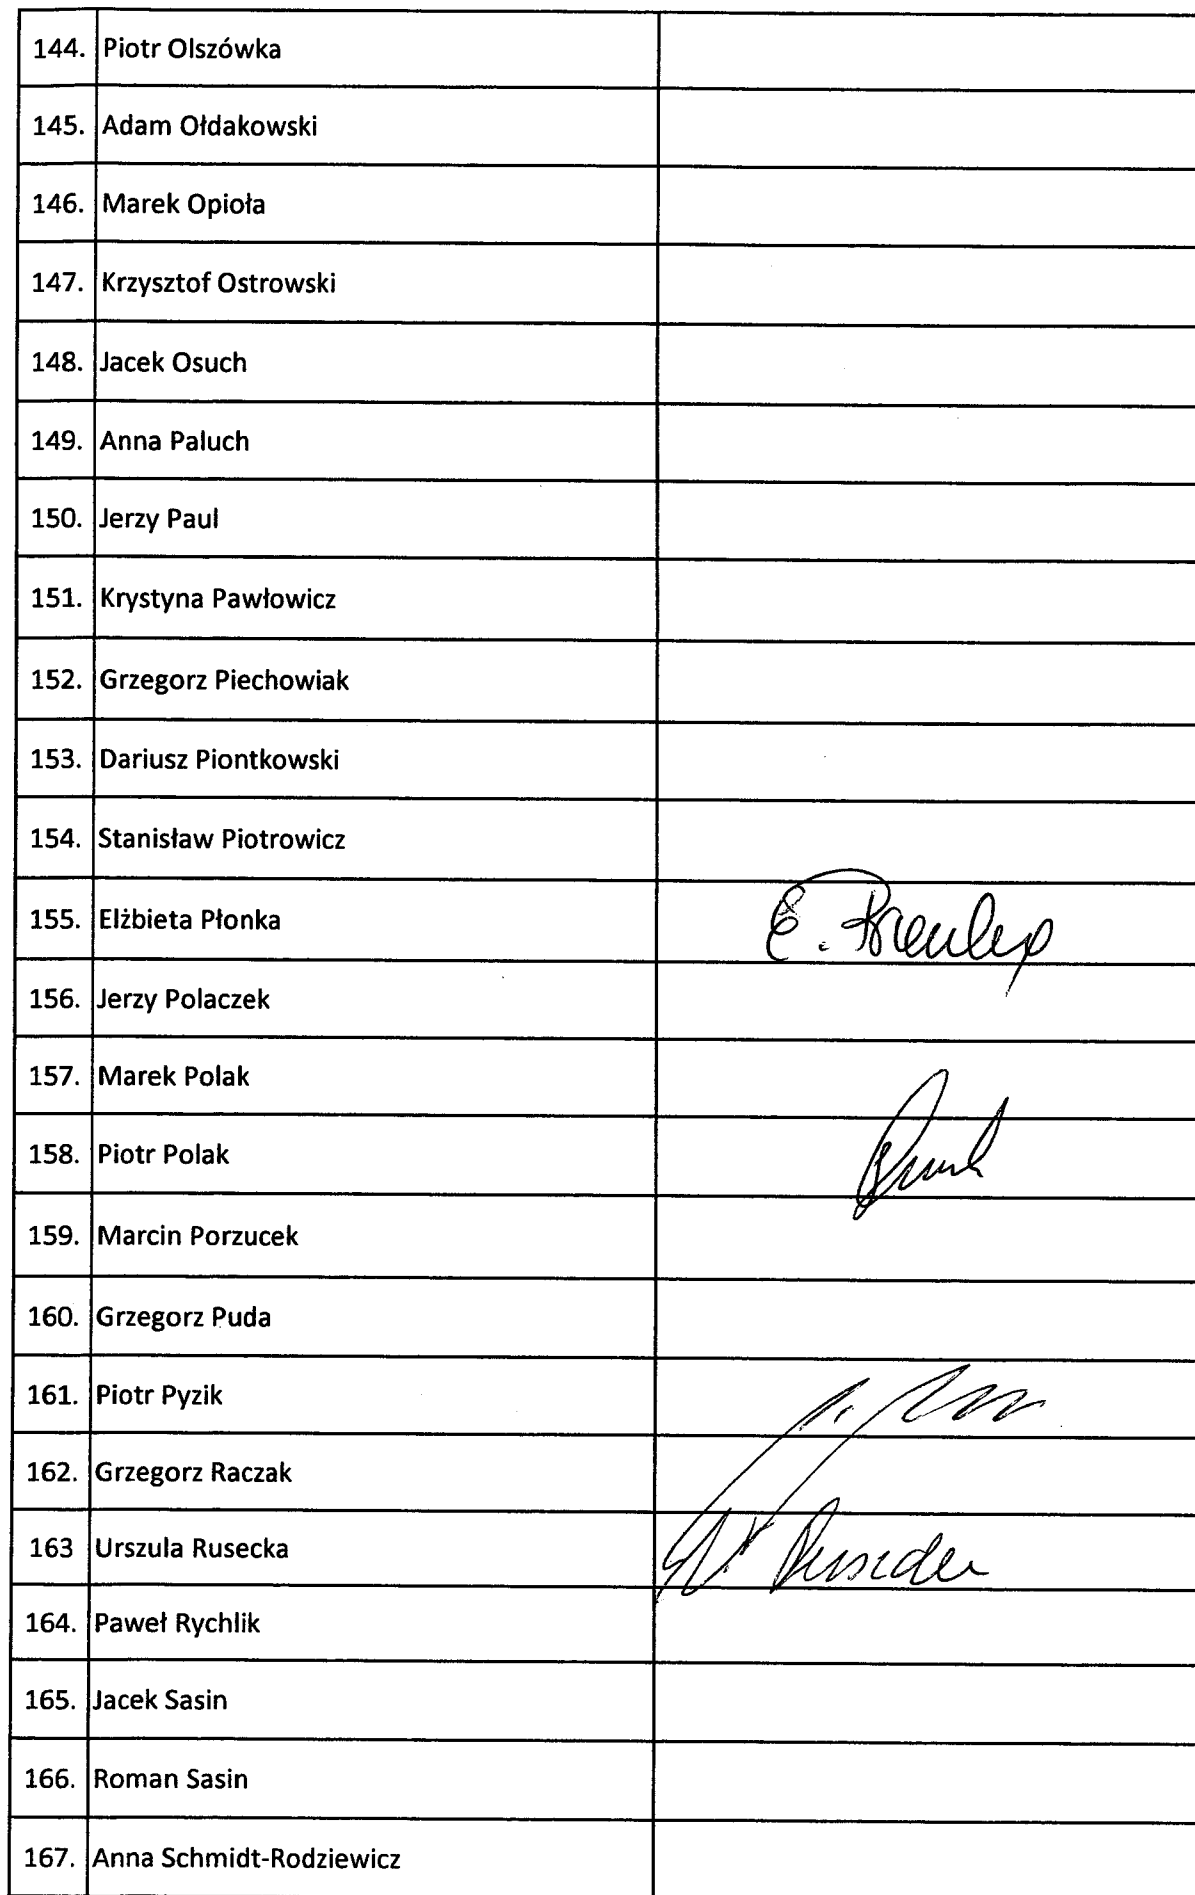 144. Piotr Olszówka
145. Adam Ołdakowski
146. Marek Opioła
147. Krzysztof Ostrowski
148. Jacek Osuch
149. Anna Paluch
150. Jerzy Paul
151. Krystyna Pawłowicz
152. Grzegorz Piechowiak
153. Dariusz Piontkowski
154. Stanisław Piotrowicz
155. Elżbieta Płonka E.
156. Jerzy Polaczek
157. Marek Polak
158. Piotr Polak
159. Marcin Porzucek
160. Grzegorz Puda
161. Piotr Pyzik
162. Grzegorz Raczak
163 Urszula Rusecka
164. Paweł Rychlik
165. Jacek Sasin
166. Roman Sasin
167. Anna Schmidt-Rodziewicz